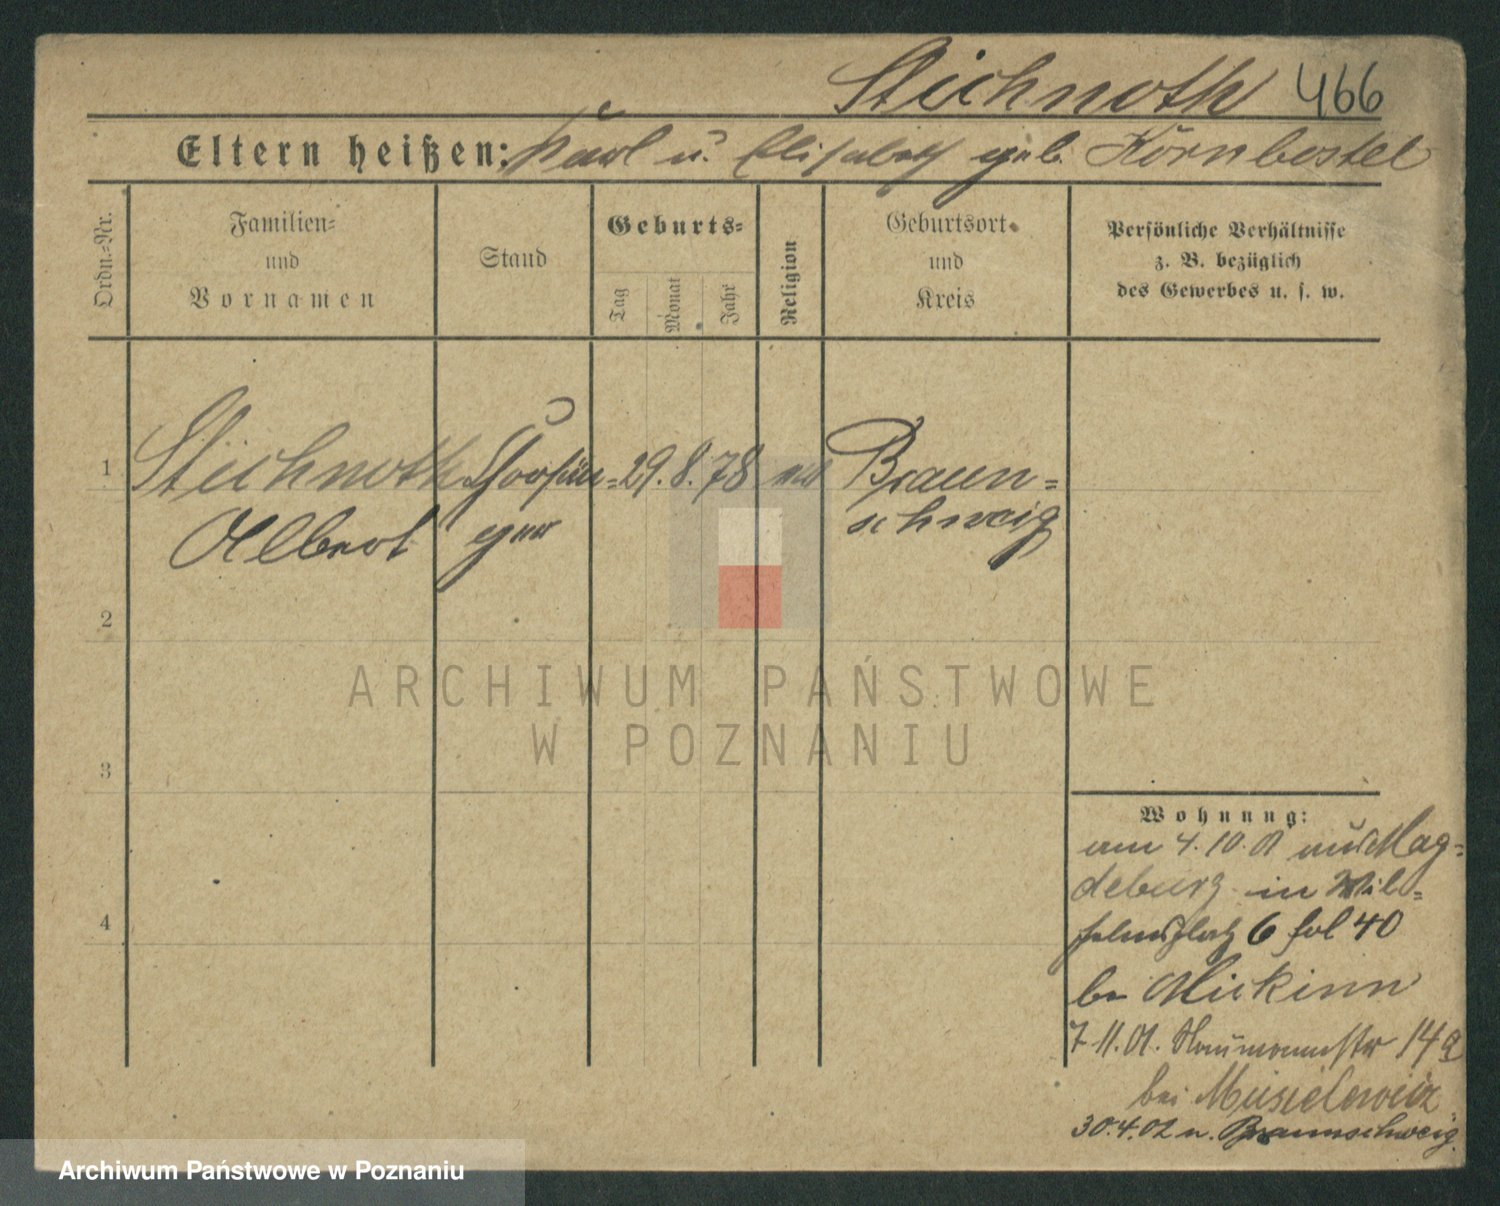 Stichnoth 466
Eltern heißen: Karl u. Elisabeth geb. Körnbostel
Ordn.-Nr.
Familien-
und
Vornamen
Stand
Geburts-
Tag
Monat
Jahr
Religion
Geburtsort
und
Kreis
Persönliche Verhältnisse
z. B. bezüglich
des Gewerbes u. s. w.
1 Stichnoth 29. 8. 78 Braun=
Albert ger schweig
2
3
4
Wohnung:
am 4. 10. 01 aus Mag=
deburg in Wil=
helmsplatz 6 fol 40
bei Mickinn
7. 11. 01. Naumannstr 14a
bei Musielewicz
30. 4. 02 n. Braunschweig.
ARCHIWUM PAŃSTWOWE
W POZNANIU
Archiwum Państwowe w Poznaniu